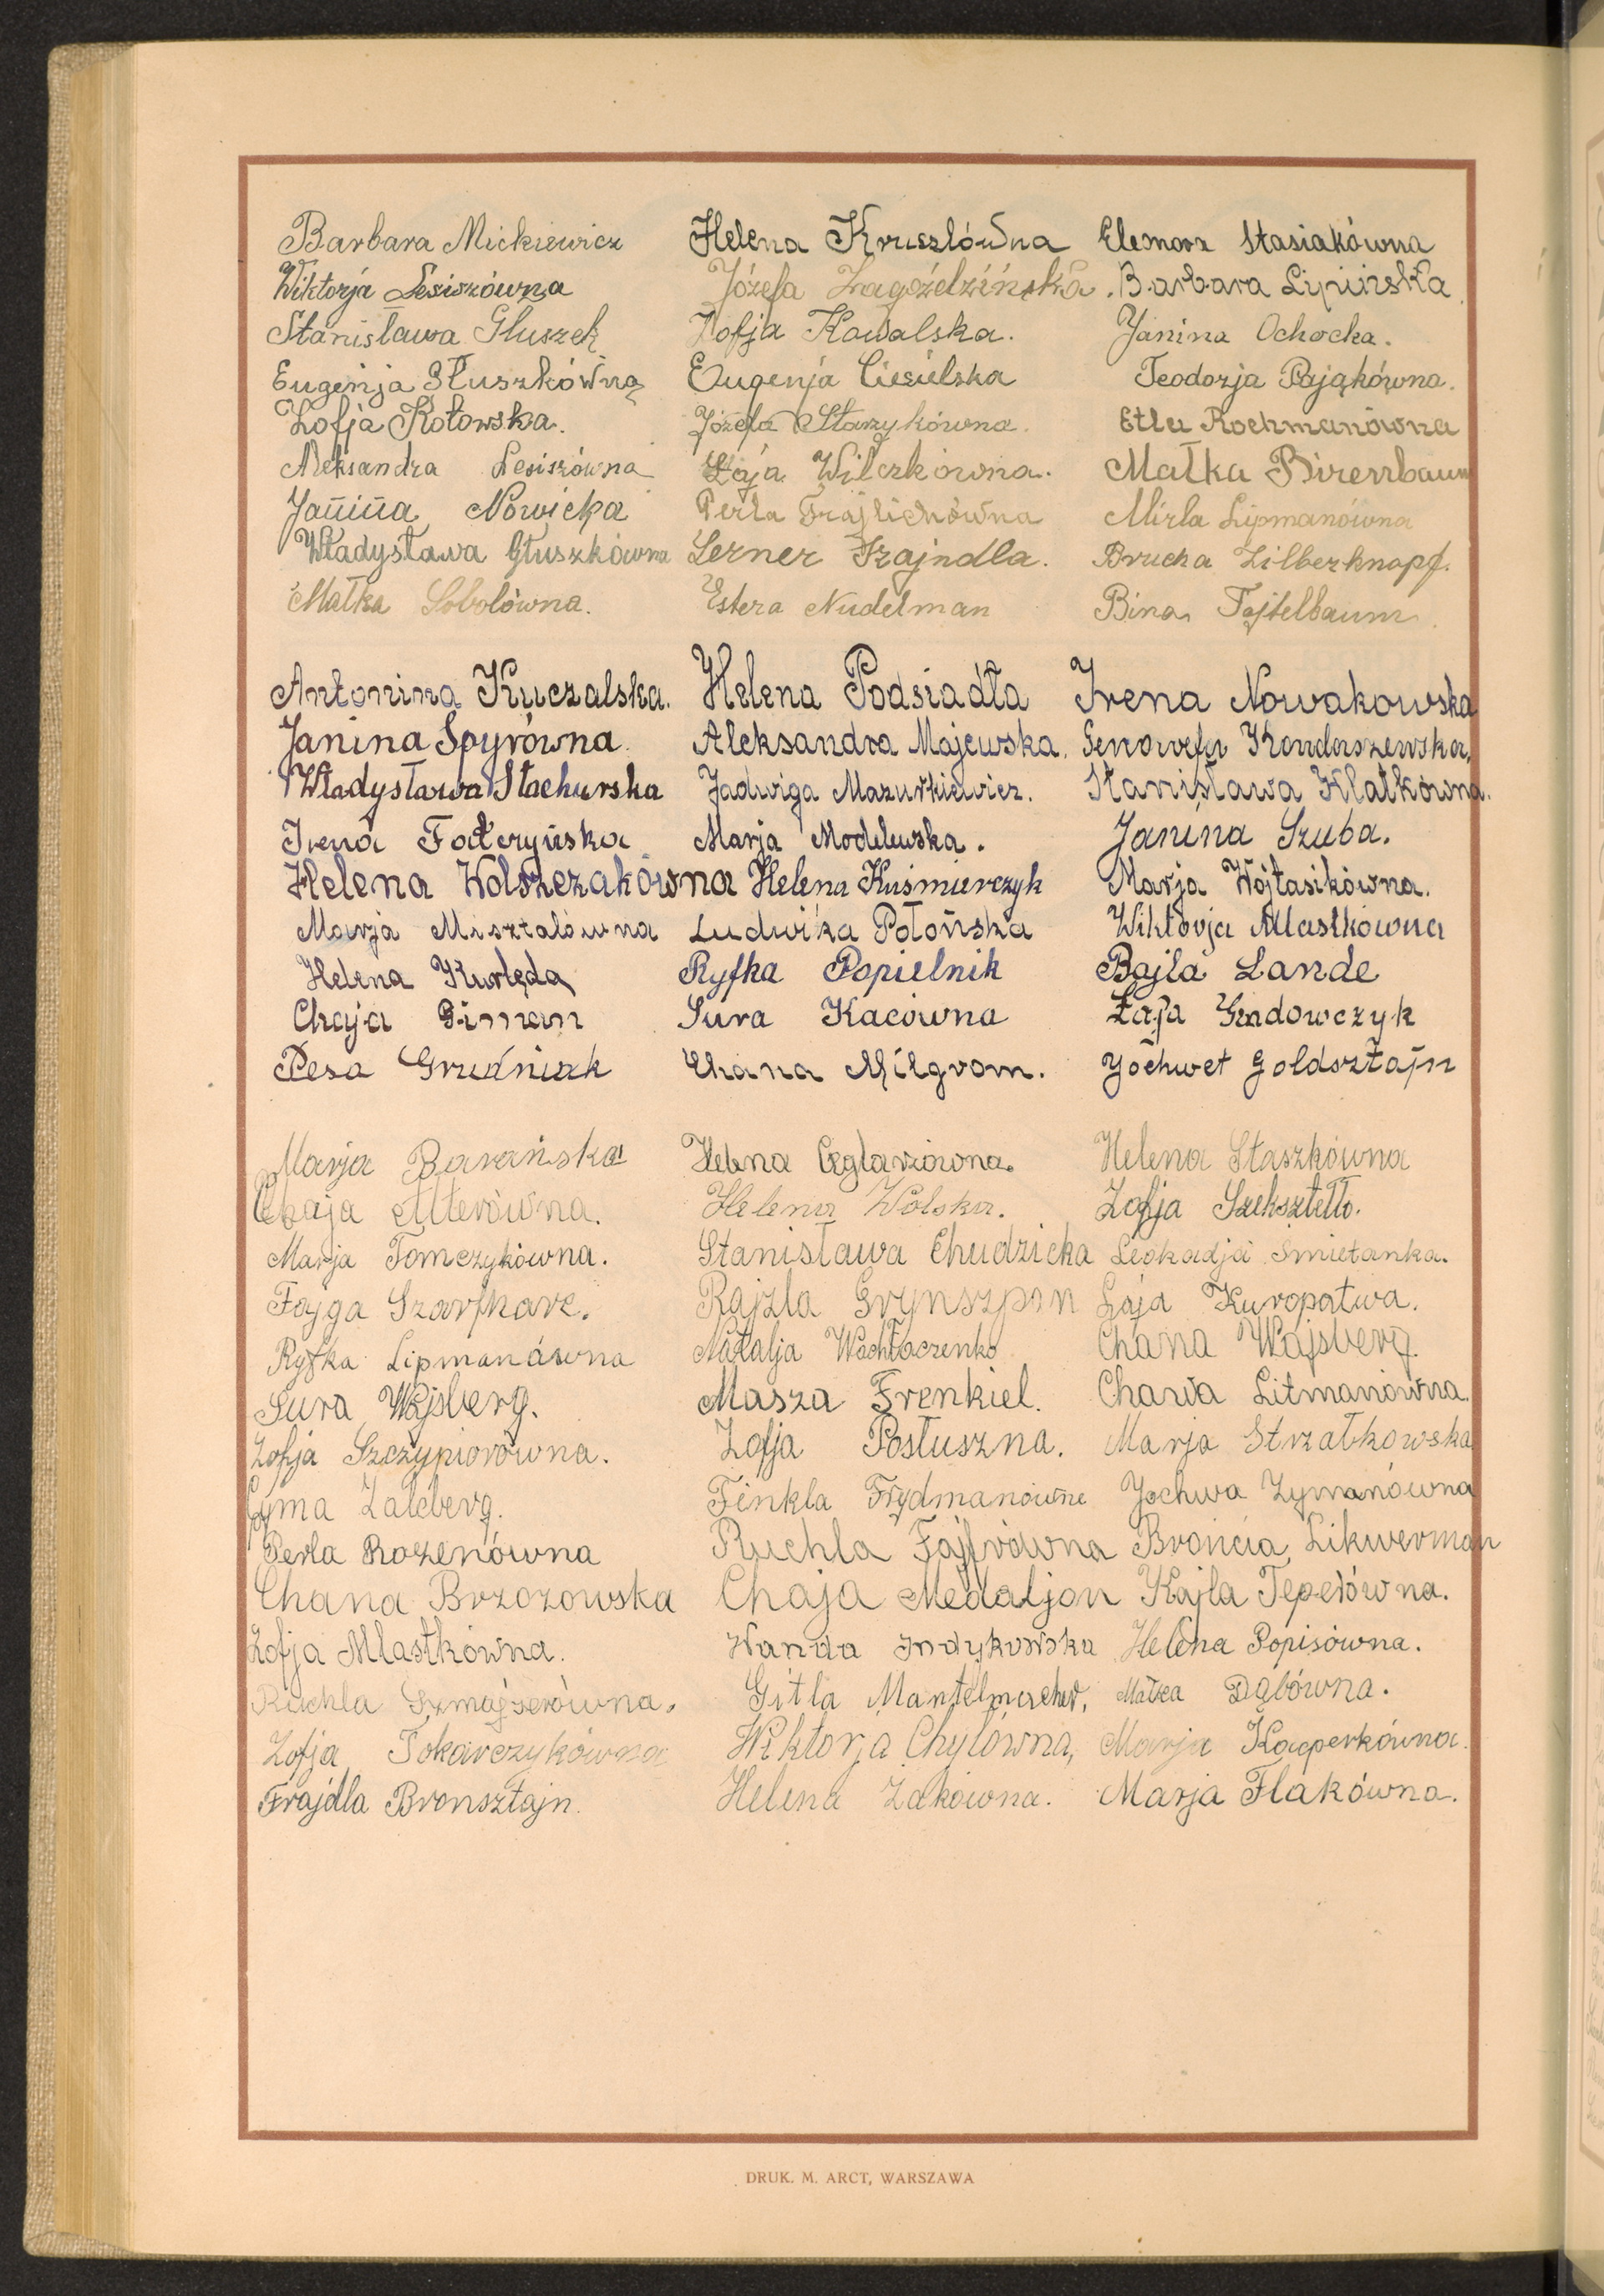 Barbara Mickiewicz Helena Kruszlówna Eleonora Stasiakówna
Wiktorja Lesiszówna Józefa Zagoździńska. Barbara Lipińska
Stanisława Głuszek Zofja Kowalska. Janina Ochocka.
Eugenja Głuszkówna Eugenja Ciesielska Teodozja Pająkówna.
Zofja Kotowska. Józefa Starzykówna. Etla Rochmanówna
Aleksandra Lesiszówna Łaja Wilczkówna. Małka Birenbaum
Janina Nowicka Perla Frajlichówna Mirla Lipmanówna
Władysława Głuszkówna Lerner Frajndla. Brucha Zilberknopf.
Małka Sobolówna. Estera Nudelman Bina Fajtelbaum.
Antonina Kuczalska. Helena Podsiadła Irena Nowakowska
Janina Spyrówna. Aleksandra Majewska. Genowefa Kondaszewska.
Władysława Stachurska Jadwiga Mazurkiewicz. Stanisława Klatkówna.
Irena Marja Modelewska. Janina Szuba.
Helena Wolszczakówna Helena Kuśmierczyk Marja Wójtasikówna.
Marja Misztalówna Ludwika Połońska Wiktorja Mlastkówna
Helena Kurłęda Ryfka Popielnik Bajla Lande
Chaja Giman Sura Kacówna Łaja Gradowczyk
Pesa Grudniak Chana Milgrom. Jochwet Goldsztajn
Marja Barańska Helena Ceglarzówna. Helena Staszkówna
Chaja Alterówna. Helena Wolska. Zofja Szeksztełło.
Marja Tomczykówna. Stanisława Chudzicka Leokadja Smietanka.
Fajga Szarfharc. Rajzla Grynszpan Łaja Kuropatwa.
Ryfka Lipmanówna Natalja Wachłaczenko Chana Wajsberg
Sura Wajsberg. Masza Frenkiel. Chawa Litmanówna.
Zofja Szczypiorówna. Zofja Posłuszna. Marja Strzałkowska
Cyma Zalcberg. Finkla Frydmanówna Jochwa Zymanówna
Perla Rozenówna Ruchla Fajfrówna Brońcia Likwerman
Chana Brzozowska Chaja Medaljon Kajla Teperówna.
Zofja Mlastkówna. Wanda Indykowska Helena Popisówna.
Ruchla Szmajserówna. Gitla Mantelmacher, Małka Dąbówna.
Zofja Tokarczykówna Wiktorja Chylówna, Marja Kacperkówna.
Frajdla Bronsztajn. Helena Żakówna. Marja Flakówna.
DRUK. M. ARCT, WARSZAWA